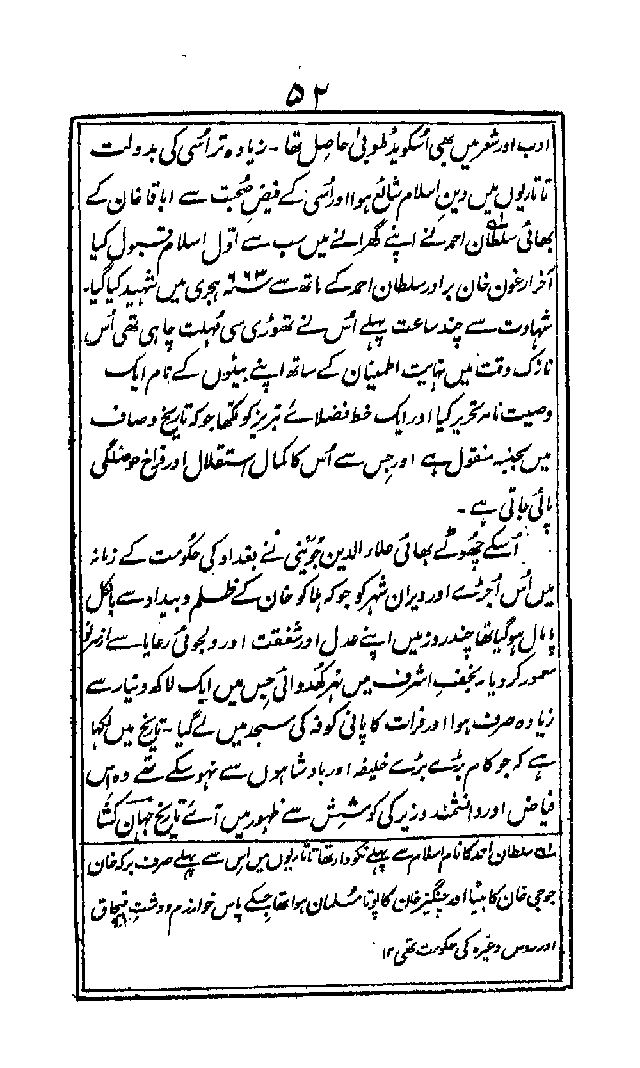 ۵۲
ادب اور شعر میں بھی اُسکو یدِ طولیٰ حاصل تھا - زیادہ تر اُسی کی بدولت
تاتاریوں میں دین اسلام شائع ہوا اور اُسی کے فیضِ صحبت سے اباقا خان کے
بھائی سلطان احمد نے اپنے گھرانے میں سب سے اوّل اسلام قبول کیا
آخر ارغون خان برادر سلطان احمد کے ہاتھ سے ۶۶۳ ہجری میں شہید کیا گیا-
شہادت سے چند ساعت پہلے اُس نے تھوڑی سی مُہلت چاہی تھی اُس
نازک وقت میں نہایت اطمینان کے ساتھ اپنے بیٹوں کے نام ایک
وصیت نامہ تحریر کیا اور ایک خط فضلائے تبریز کو لکھا جو کہ تاریخ وصاف
میں بجنسہ منقول ہے اور جس سے اُس کا کمال استقلال اور فراخ حوصلگی
پائی جاتی ہے -
اُسکے چھوٹے بھائی علاء الدین جُوینی نے بغداد کی حکومت کے زمانہ
میں اُس اُجڑے اور ویران شہر کو جو کہ ہلاکو خان کے ظلم و بیداد سے بالکل
پامال ہو گیا تھا چند روز میں اپنے عدل اور شفقت اور دلجوئی رعایا سے از سرِ نو
معمور کر دیا - نجفِ اشرف میں نہر کھُدوائی جس میں ایک لاکھ دینار سے
زیادہ صرف ہوا اور فرات کا پانی کوفہ کی مسجد میں لے گیا - تاریخ میں لکھا
ہے کہ جو کام بڑے بڑے خلیفہ اور بادشاہوں سے نہو سکے تھے وہ اس
فیاض اور دانشمند وزیر کی کوشش سے ظہور میں آئے تاریخ جہان کُشا
سلطان احمد کا نام اسلام سے پہلے نکودار تھا تاتاریوں میں اس سے پہلے صرف برکہ خان
جوجی خان کا بیٹا اور چنگیز خان کا پوتا مسلمان ہوا تھا جسکے پاس خوارزم و دشتِ قبچاق
اور روس وغیرہ کی حکومت تھی ۱۲